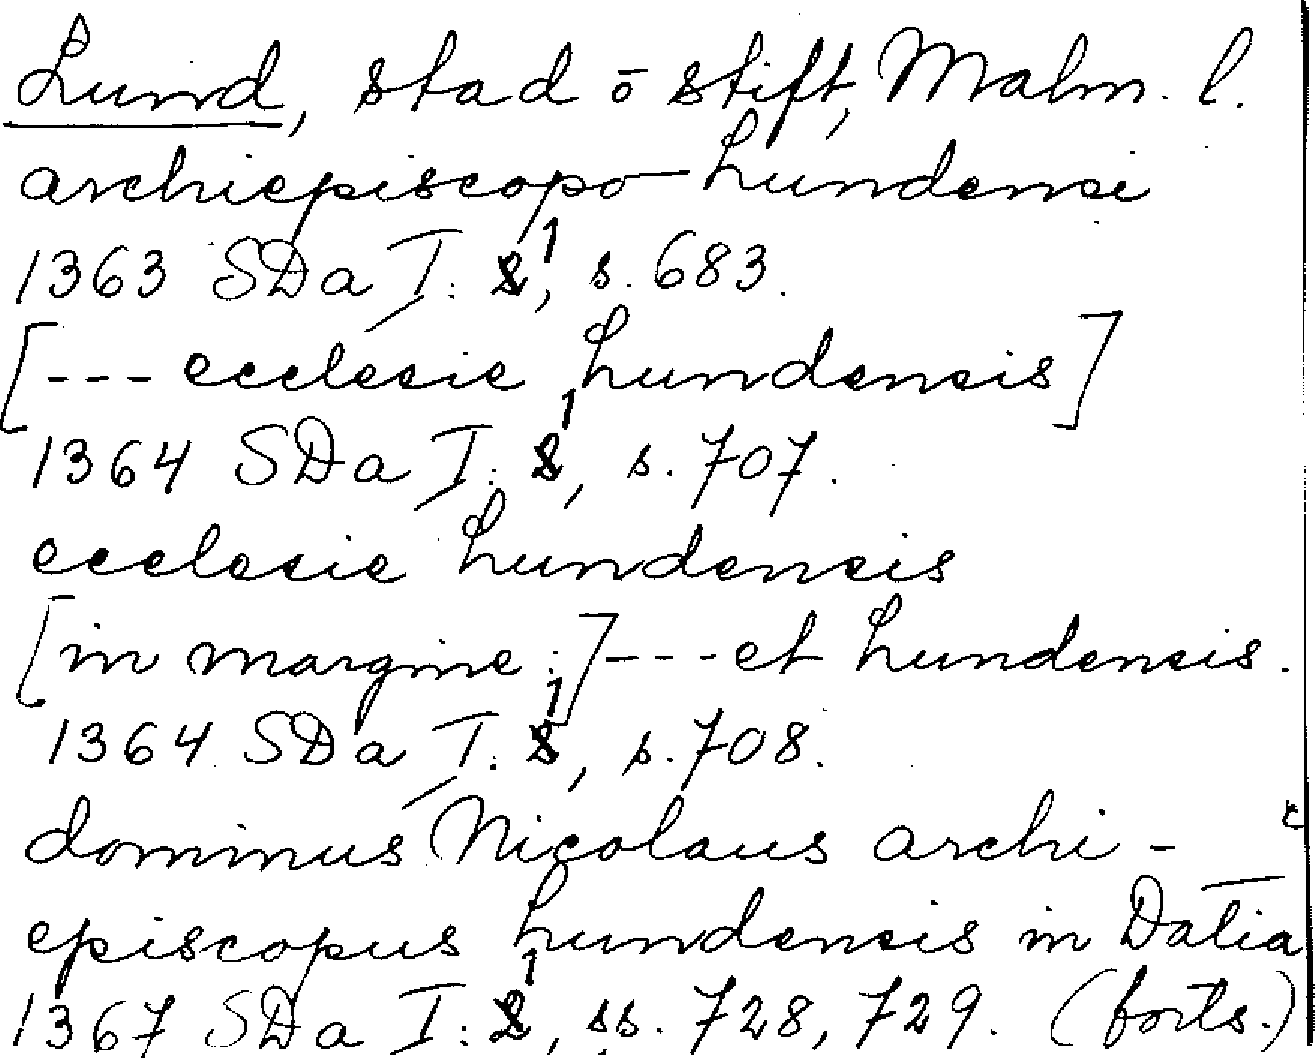 Lund, stad o stift, Malm. l.
archiepiscopo Lundensi
1363 SDa I: 1, s. 683.
[--- ecclesie Lundensis]
1364 SDa I: 1, s. 707.
ecclesie Lundensis
[in margine:] --- et Lundensis.
1364 SDa I: 1, s. 708.
dominus Nicolaus archi-
episcopus Lundensis in Datia
1367 SDa I: 1, ss. 728, 729. (forts.)